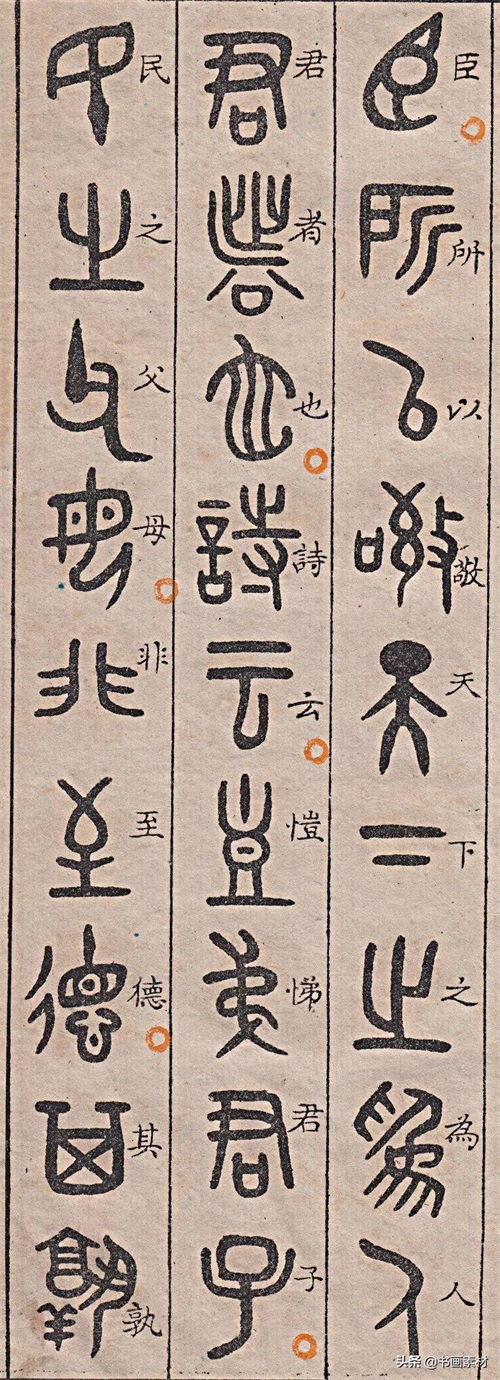 臣所以敬天下之為人
君者也詩云愷悌君子
民之父母非至德其孰
头条@书画素材